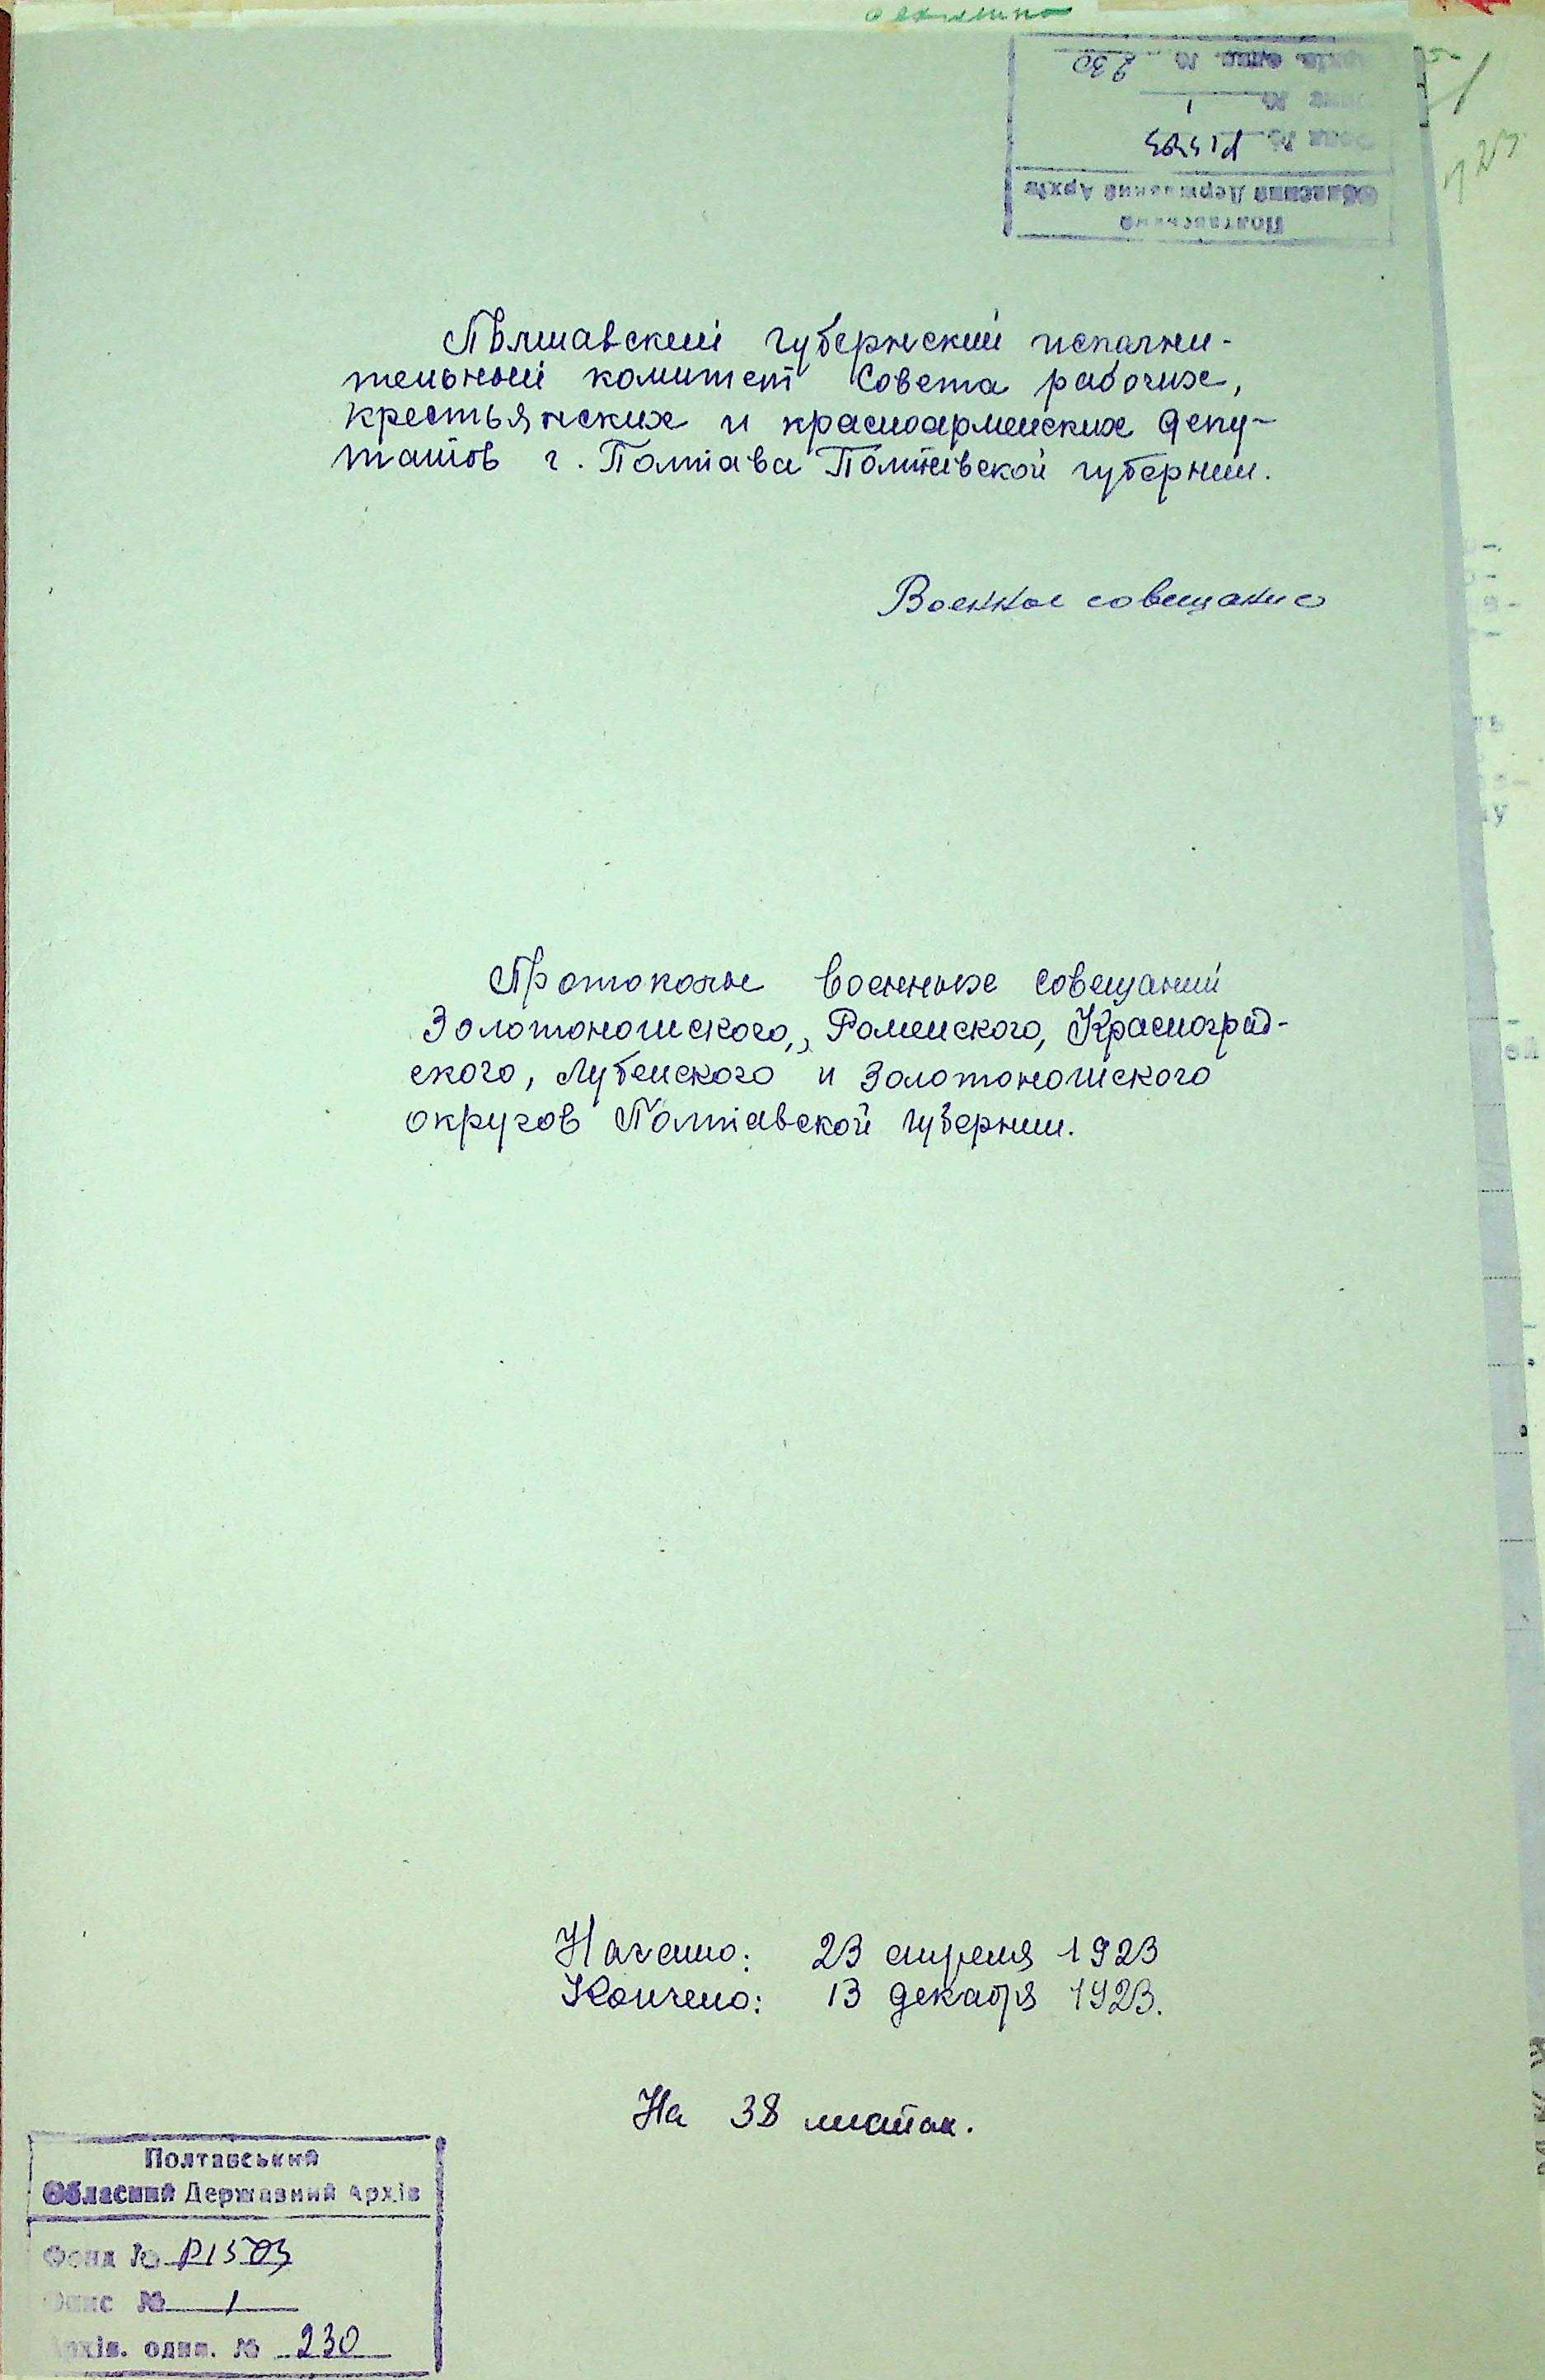 Полтавский губернский исполни-
тельный комитет Совета рабочих,
крестьянских и красноармейских депу-
татов г. Полтава Полтавской губернии.
Военное совещание
Протоколы военных совещаний
Золотоношского, Роменского, Красноград-
ского, Лубенского и Золотоношского
округов Полтавской губернии.
Начато: 23 апреля 1923
Кончено: 13 декабря 1923.
На 38 листах.
Полтавський
Обласний Державний Архів
Фонд № Р1503
Опис № 1
Архів. один. № 230
Полтавський
Обласний Державний Архів
Фонд № Р1503
Опис № 1
Архів. один. № 230